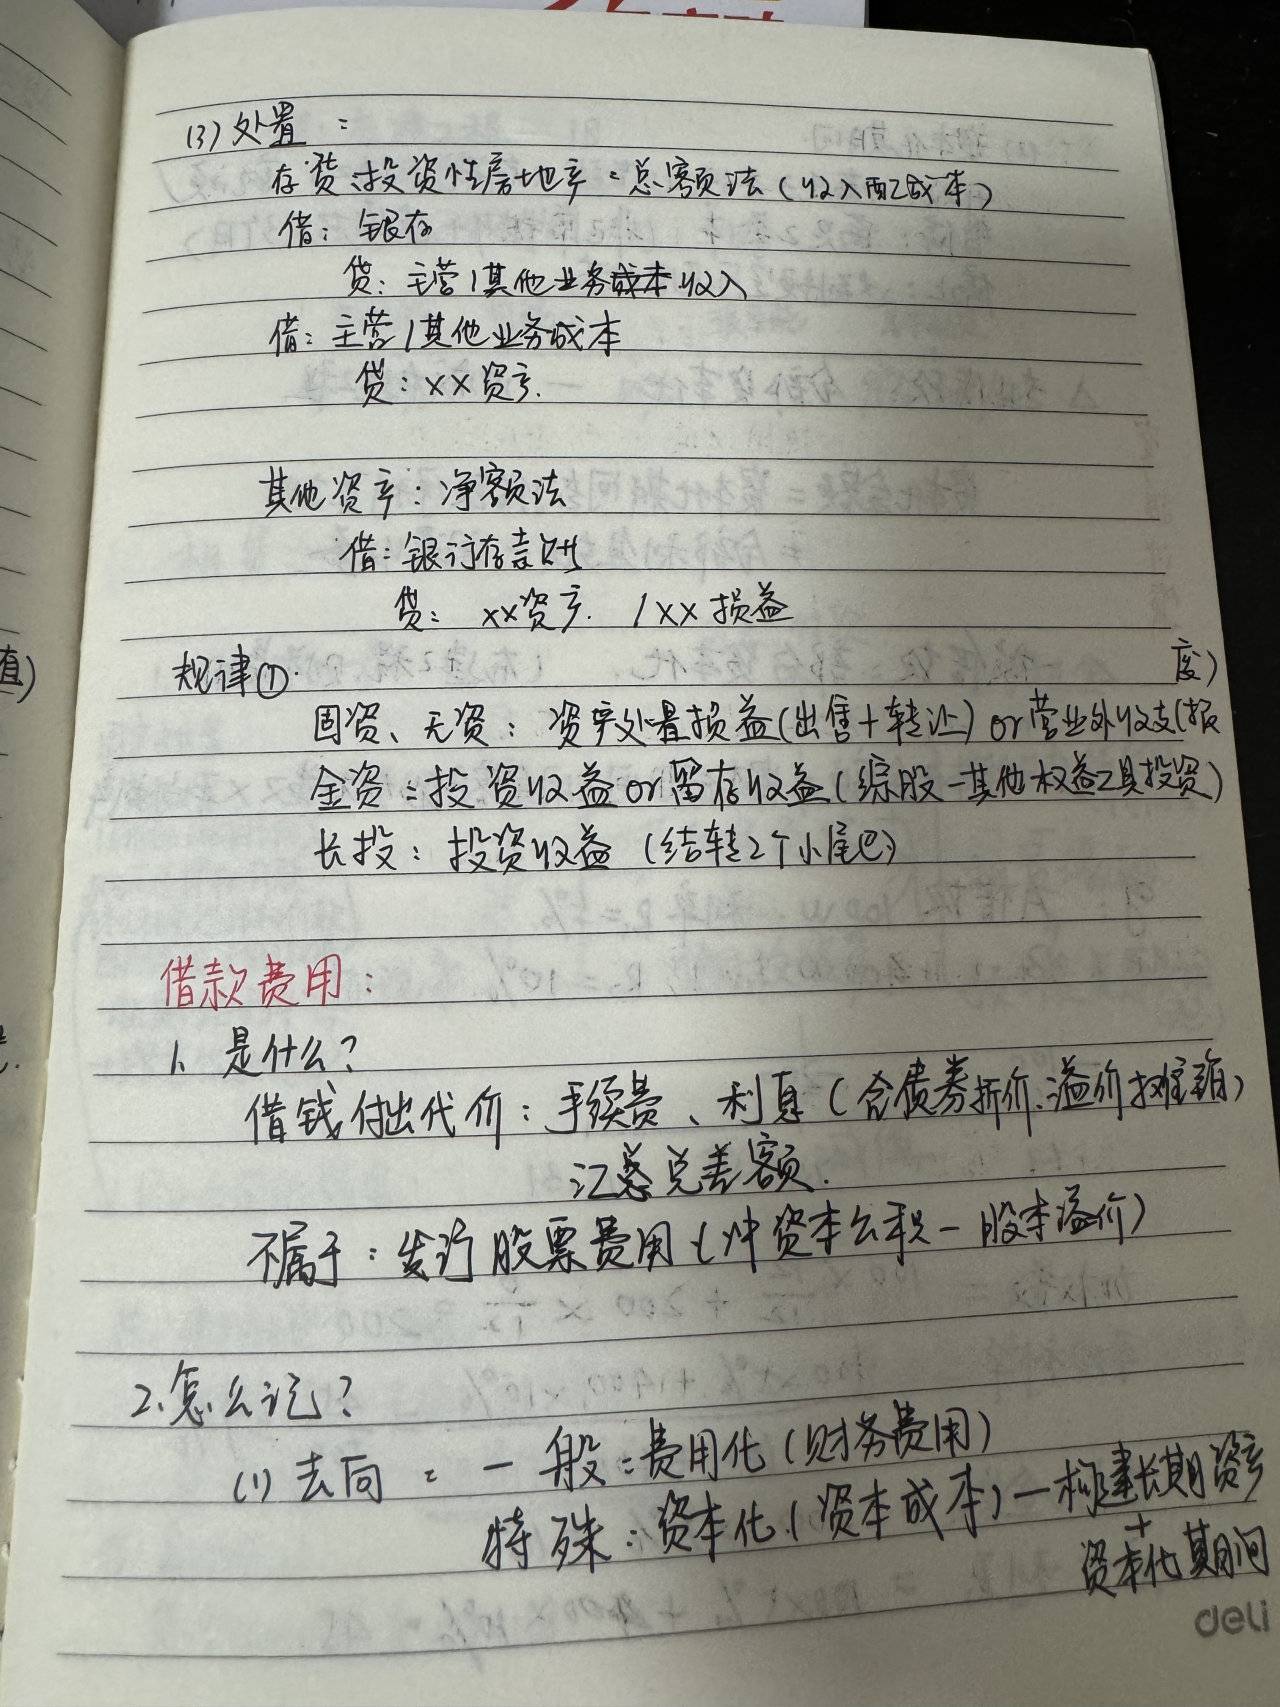 (3) 处置：
存货、投资性房地产：总额法（收入配成本）
借：银存
贷：主营/其他业务成本收入
借：主营/其他业务成本
贷：××资产.
其他资产：净额法
借：银行存款
贷：××资产. /××损益
规律①.
固资、无资：资产处置损益(出售+转让) or 营业外收支(报废)
金资：投资收益 or 留存收益（综股-其他权益工具投资）
长投：投资收益（结转2个小尾巴）
借款费用：
1、是什么？
借钱付出代价：手续费、利息（含债券折价、溢价摊销）
汇总兑差额.
不属于：发行股票费用（冲资本公积-股本溢价）
2.怎么记？
(1) 去向：一般：费用化（财务费用）
特殊：资本化（资本成本）—构建长期资产
+
资本化期间
deli